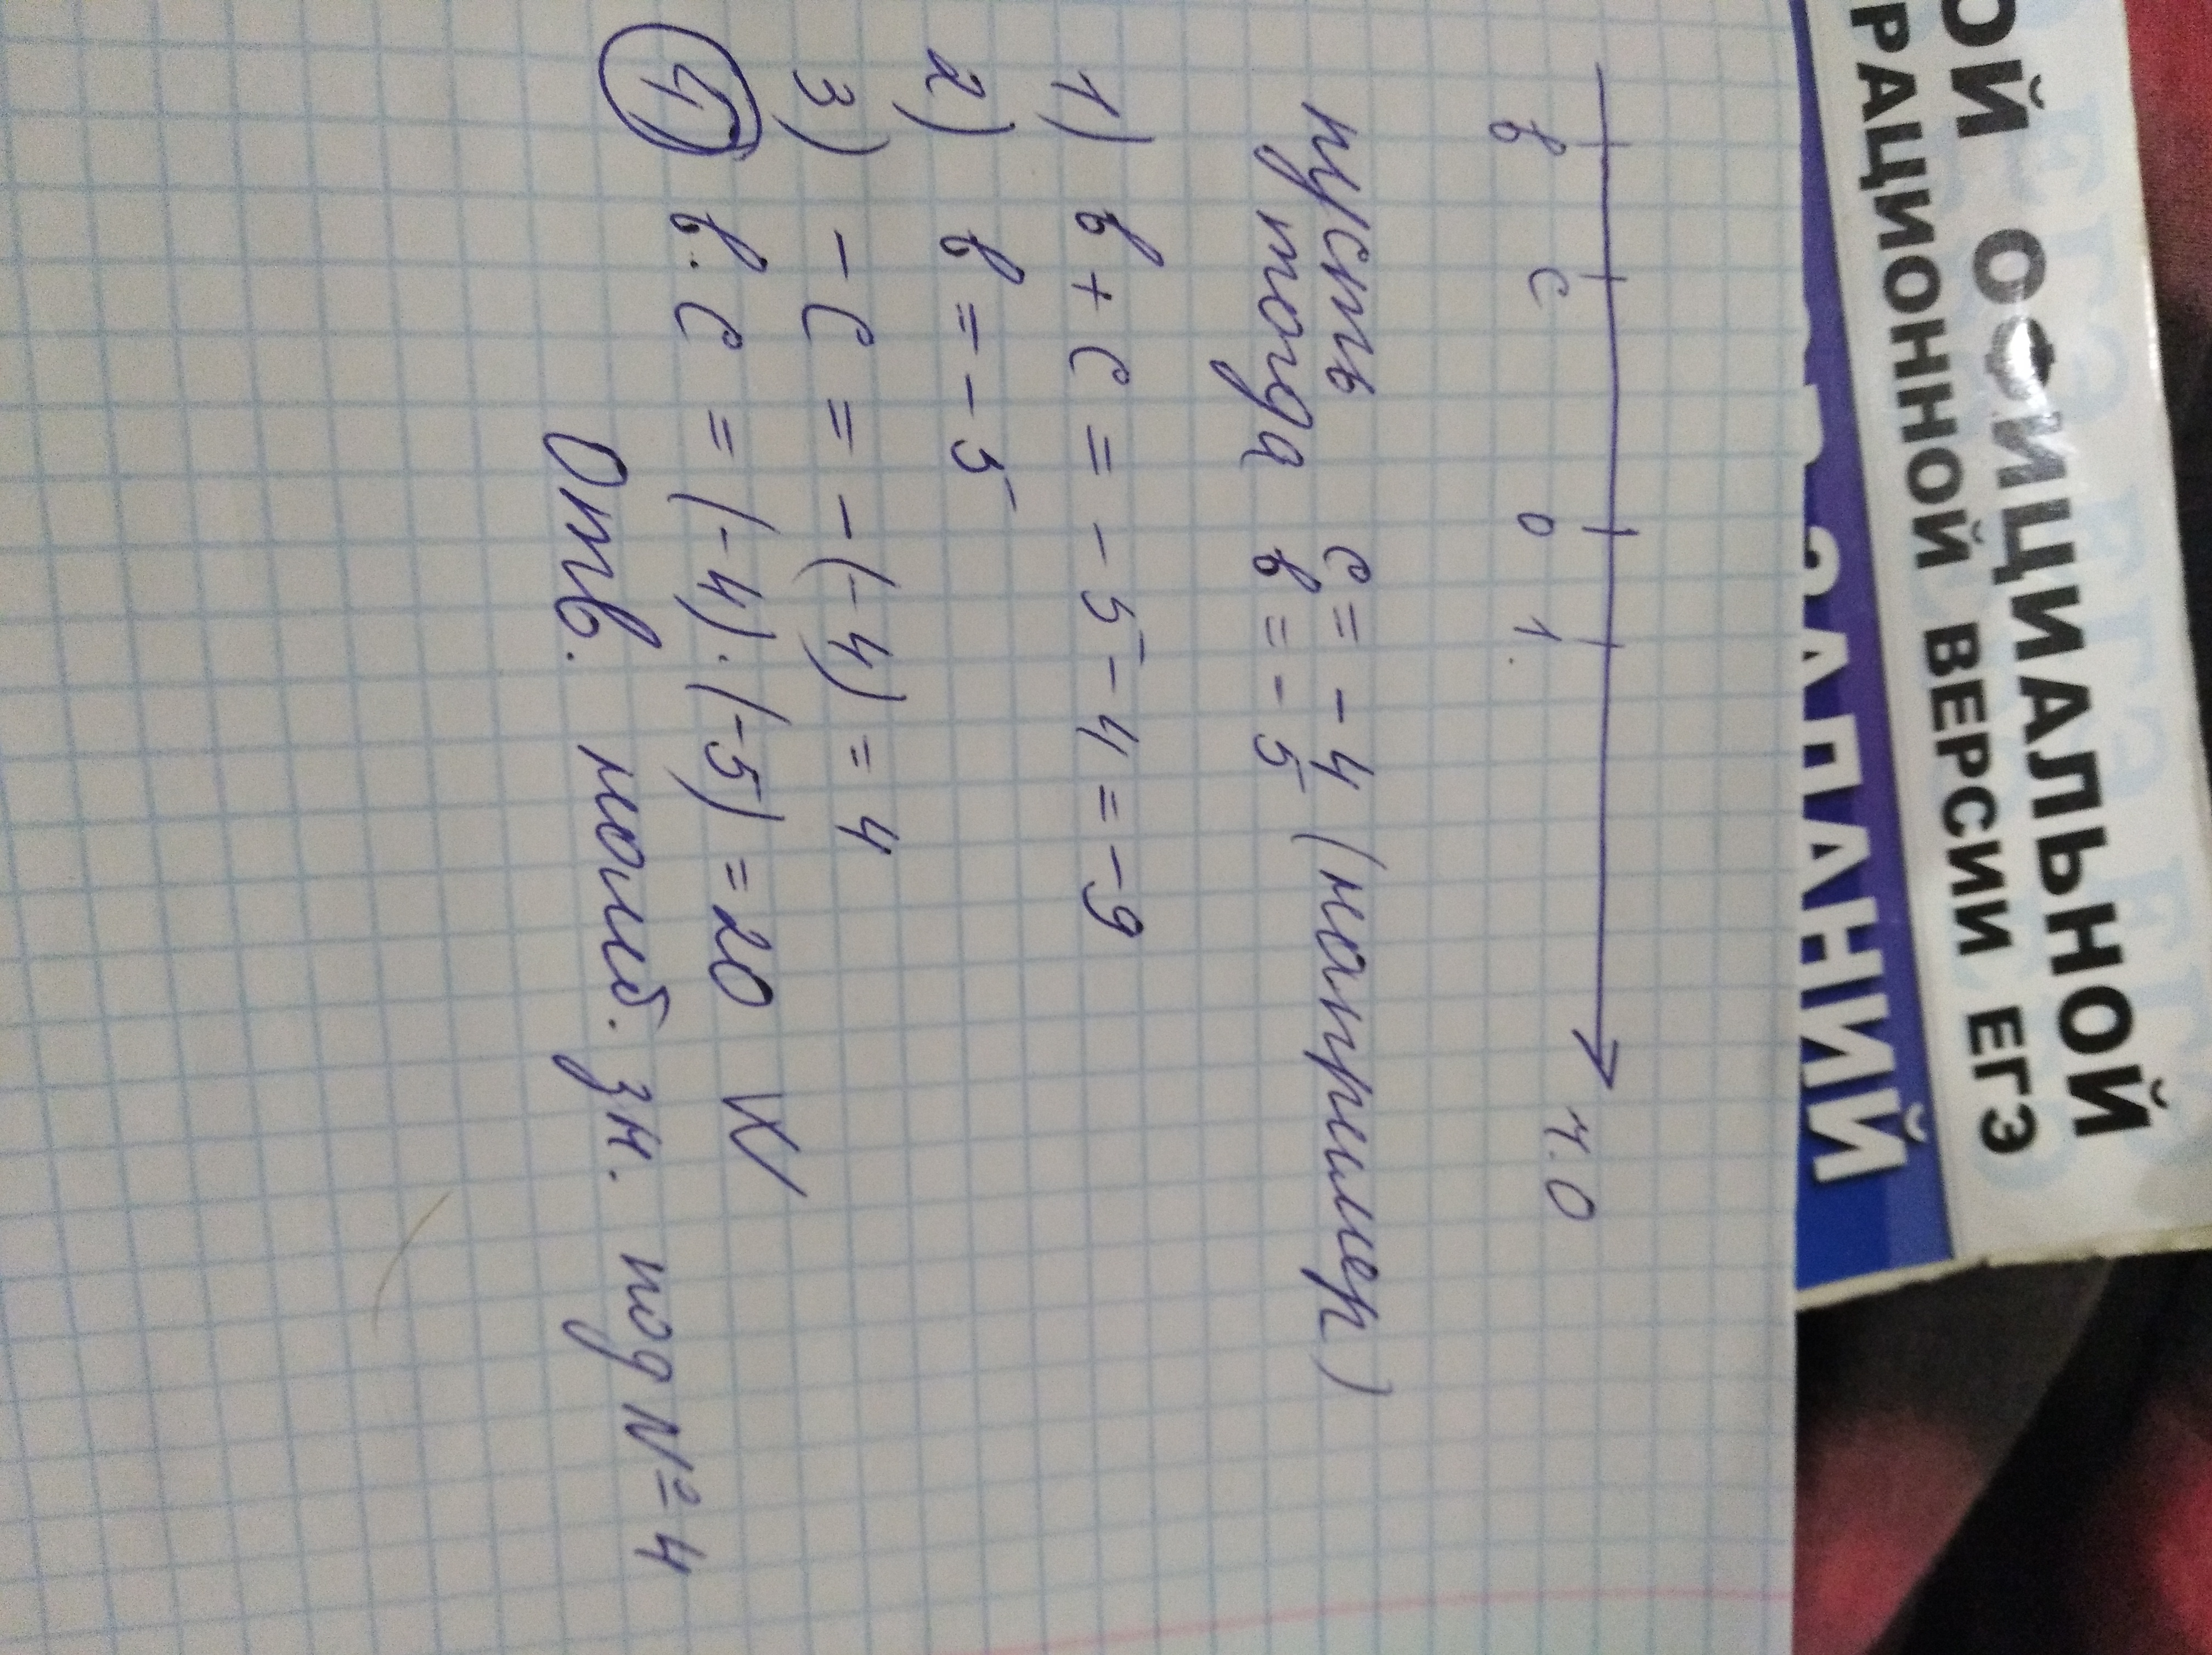 ОЙ ОФИЦИАЛЬНОЙ
РАЦИОННОЙ ВЕРСИИ ЕГЭ
ЗАДАНИЙ
в с 0 1 ч.о
пусть с = -4 (например)
тогда в = -5
1) в + с = -5 - 4 = -9
2) в = -5
3) -с = -(-4) = 4
4) в·с = (-4)·(-5) = 20 V
Отв. наиб. зн. под №4